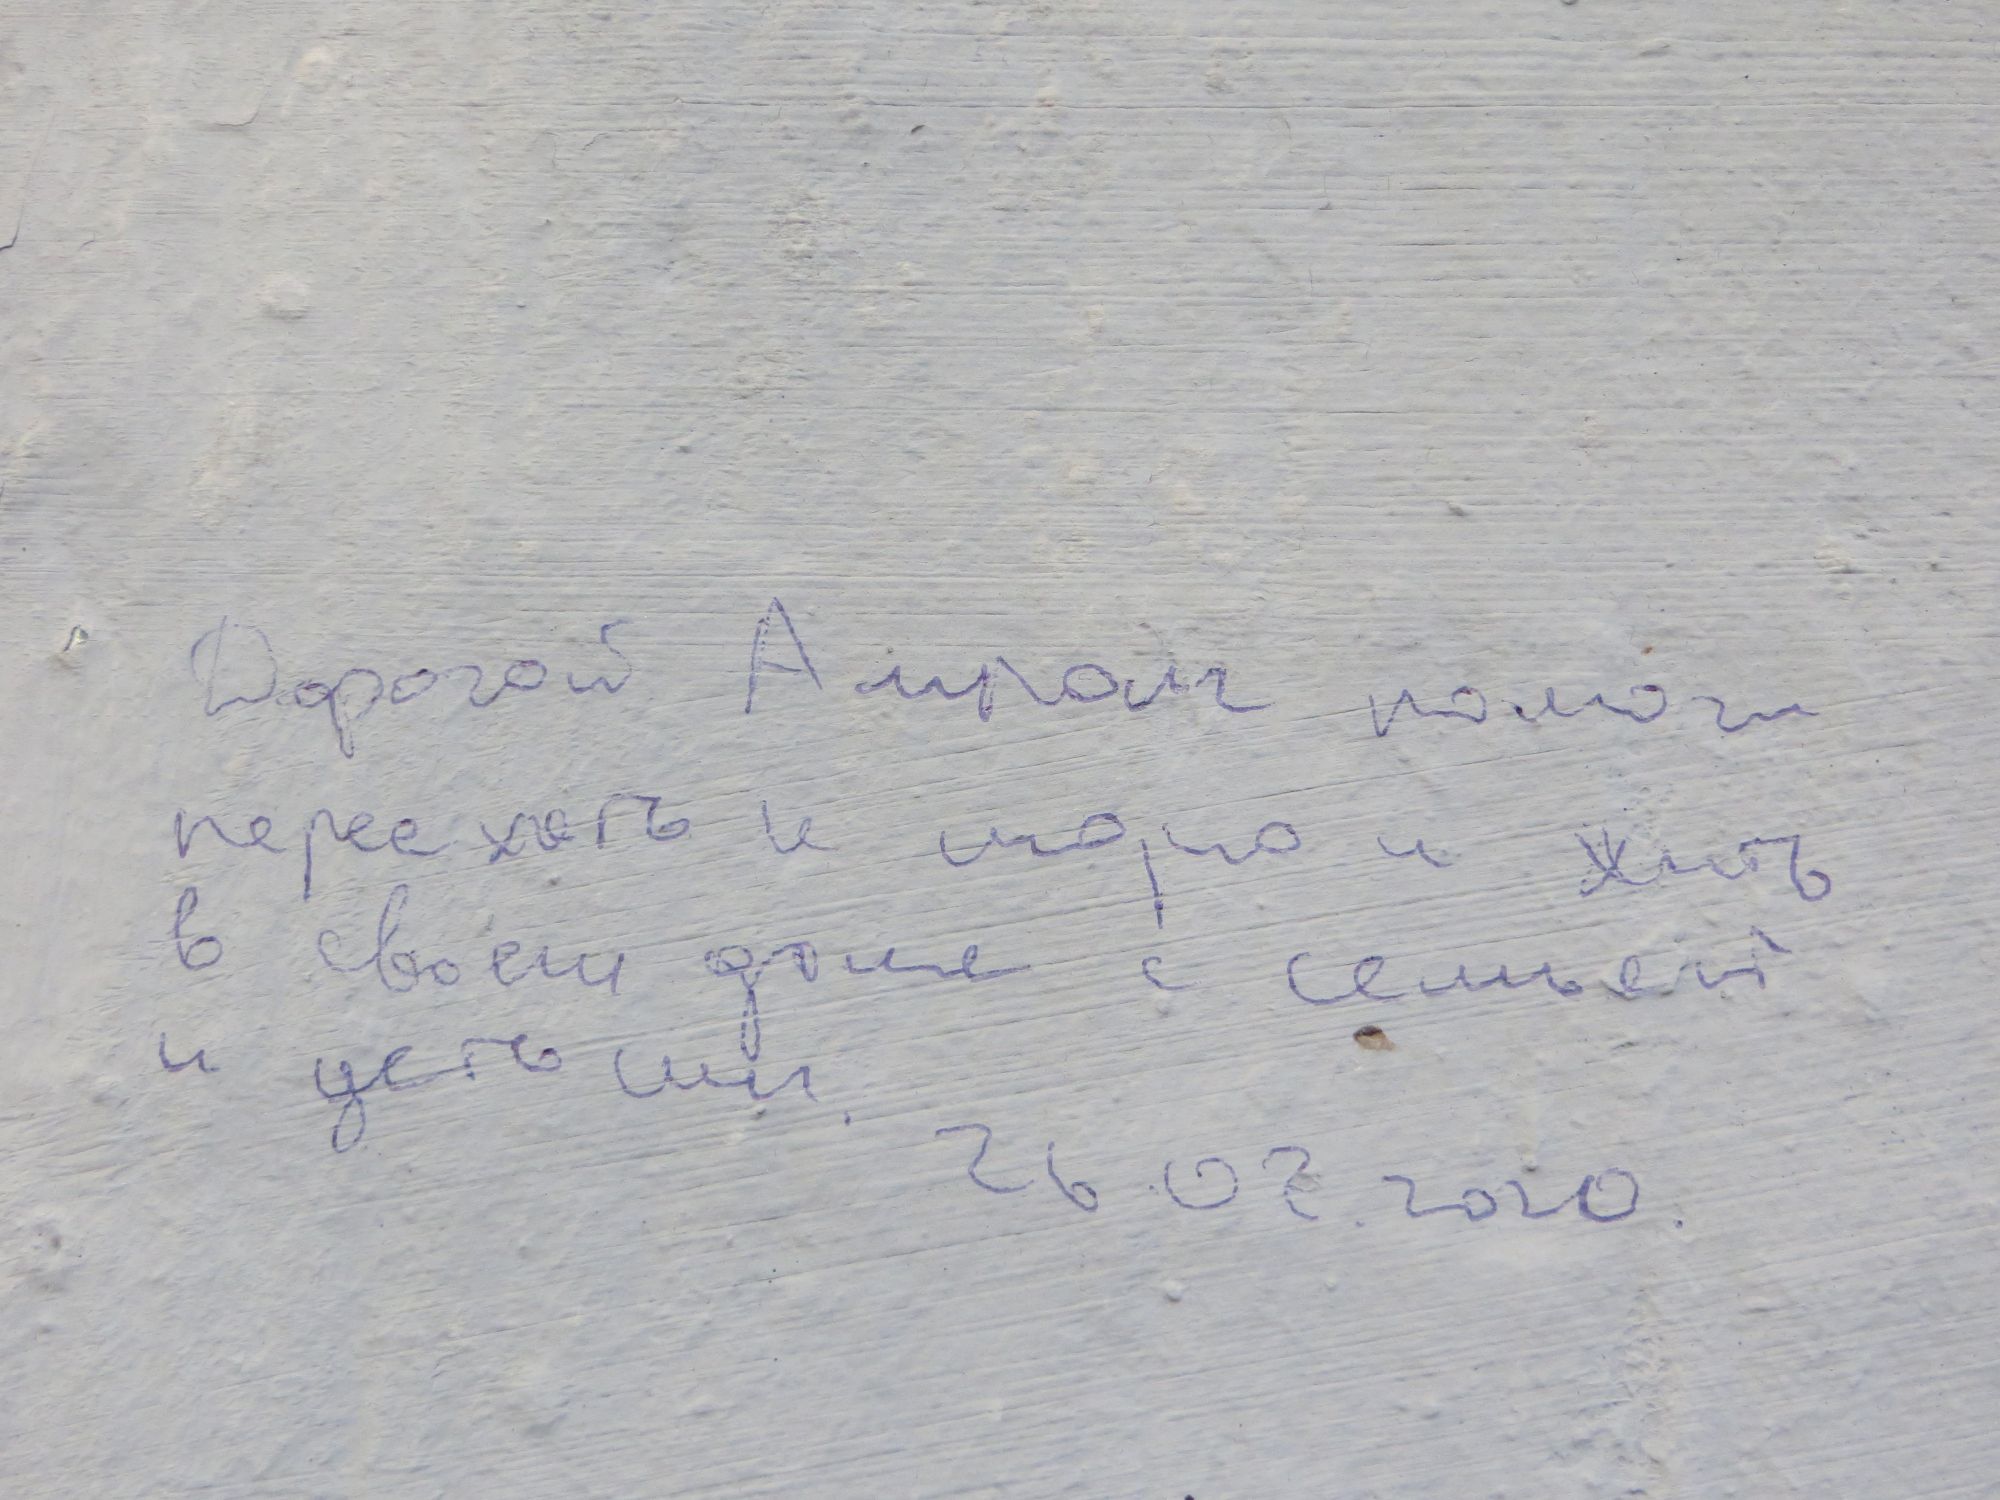 Дорогой Амрам помоги
переехать к морю и жить
в своем доме с семьей
и детьми.
26.02.2020.